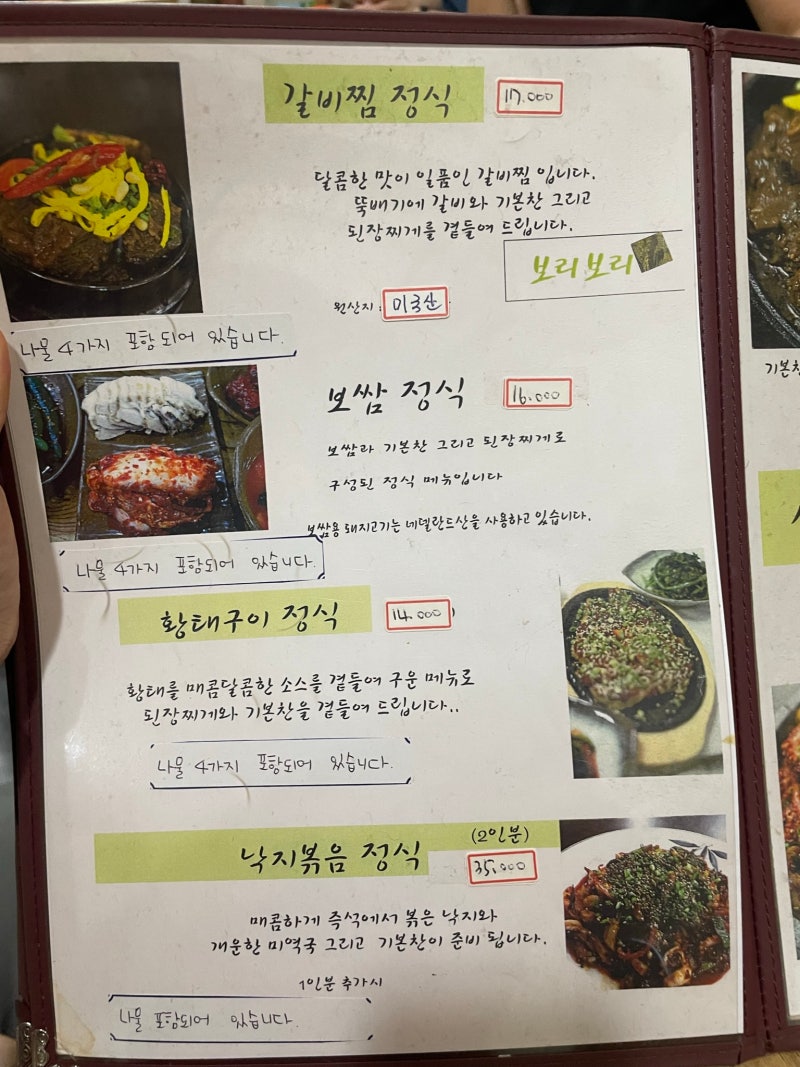 갈비찜 정식 17.000
달콤한 맛이 일품인 갈비찜 입니다.
뚝배기에 갈비와 기본찬 그리고
된장찌개를 곁들여 드립니다.
보리보리
원산지 : 미국산
나물 4가지 포함되어 있습니다.
보쌈 정식 16.000
보쌈과 기본찬 그리고 된장찌게로
구성된 정식 메뉴입니다
보쌈용 돼지고기는 네델란드산을 사용하고 있습니다.
나물 4가지 포함되어 있습니다.
황태구이 정식 14.000
황태를 매콤달콤한 소스를 곁들여 구운 메뉴로
된장찌게와 기본찬을 곁들여 드립니다..
나물 4가지 포함되어 있습니다.
낙지볶음 정식 (2인분)
35.000
매콤하게 즉석에서 볶은 낙지와
개운한 미역국 그리고 기본찬이 준비 됩니다.
1인분 추가시
나물 포함되어 있습니다.